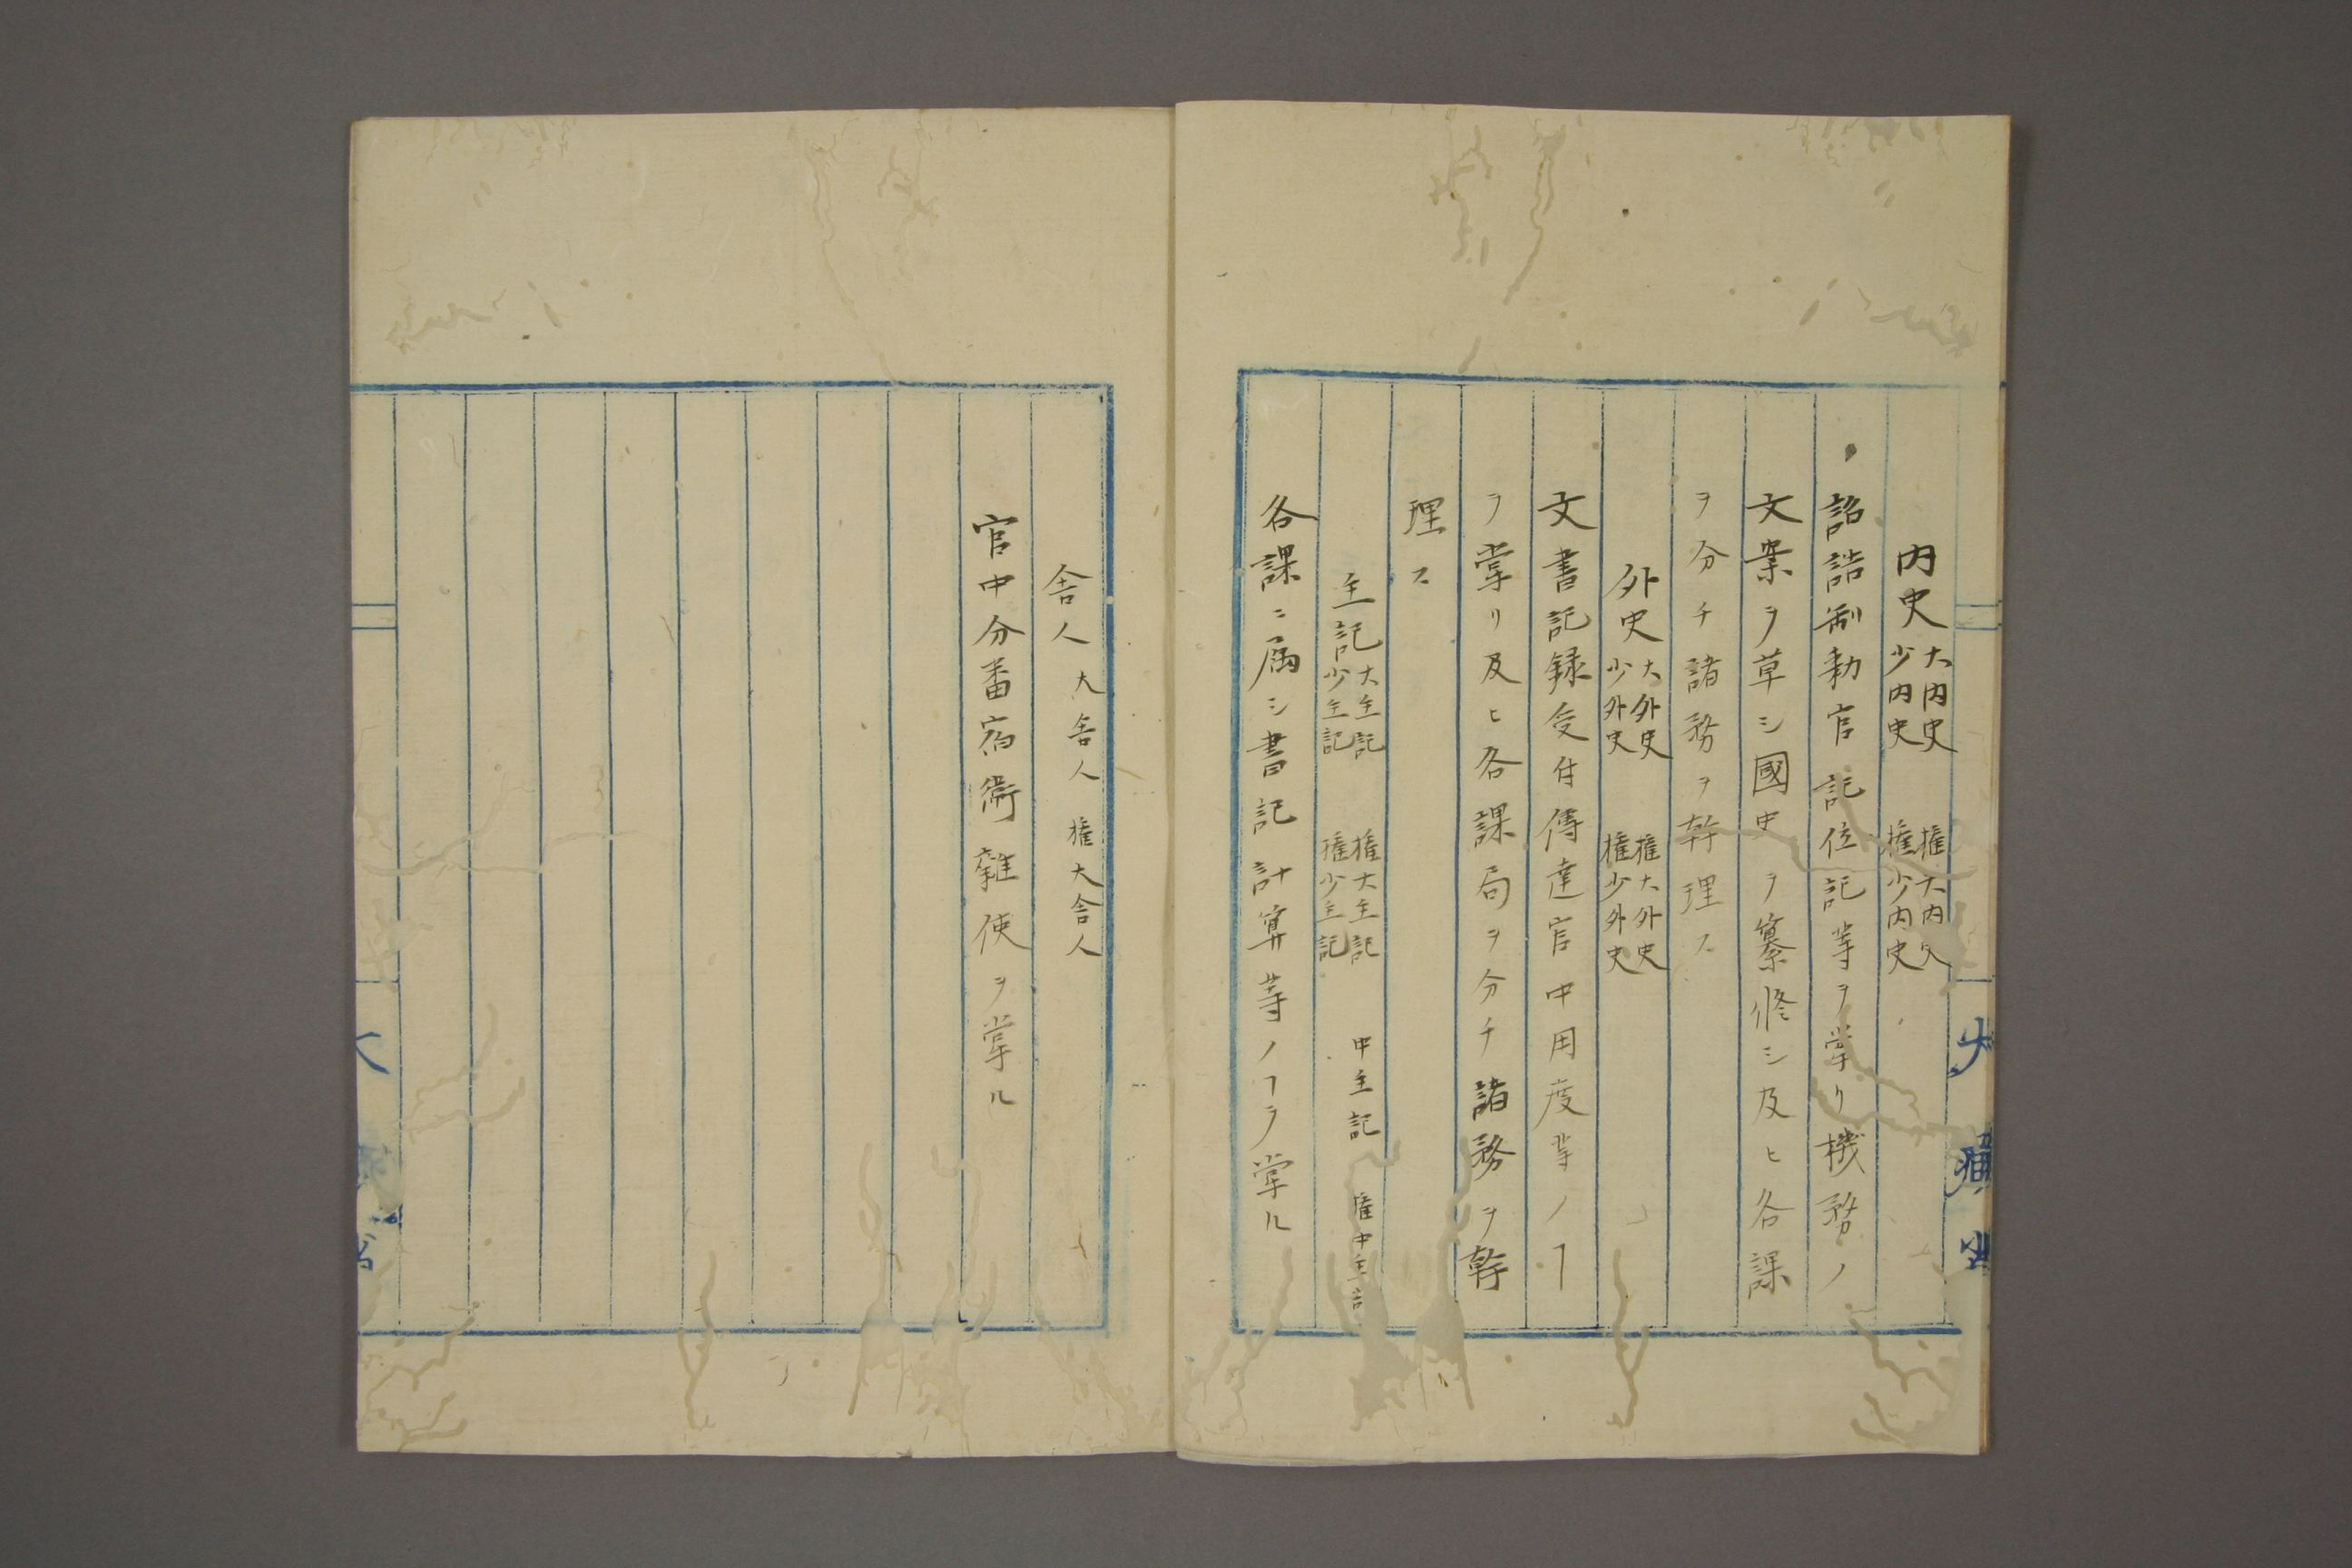 内史 大内史 少内史 権大内史 権少内史
詔誥制勅官記位記等ヲ掌リ機務ノ
文案ヲ草シ國史ヲ纂修シ及ヒ各課
ヲ分チ諸務ヲ幹理ス
外史 大外史 少外史 権大外史 権少外史
文書記録受付傳達官中用度等ノヿ
ヲ掌リ及ヒ各課局ヲ分チ諸務ヲ幹
理ス
主記 大主記 少主記 権大主記 権少主記 中主記 権中主記
各課ニ属シ書記計算等ノヿヲ掌ル
舎人 大舎人 権大舎人
官中分番宿衛雜使ヲ掌ル